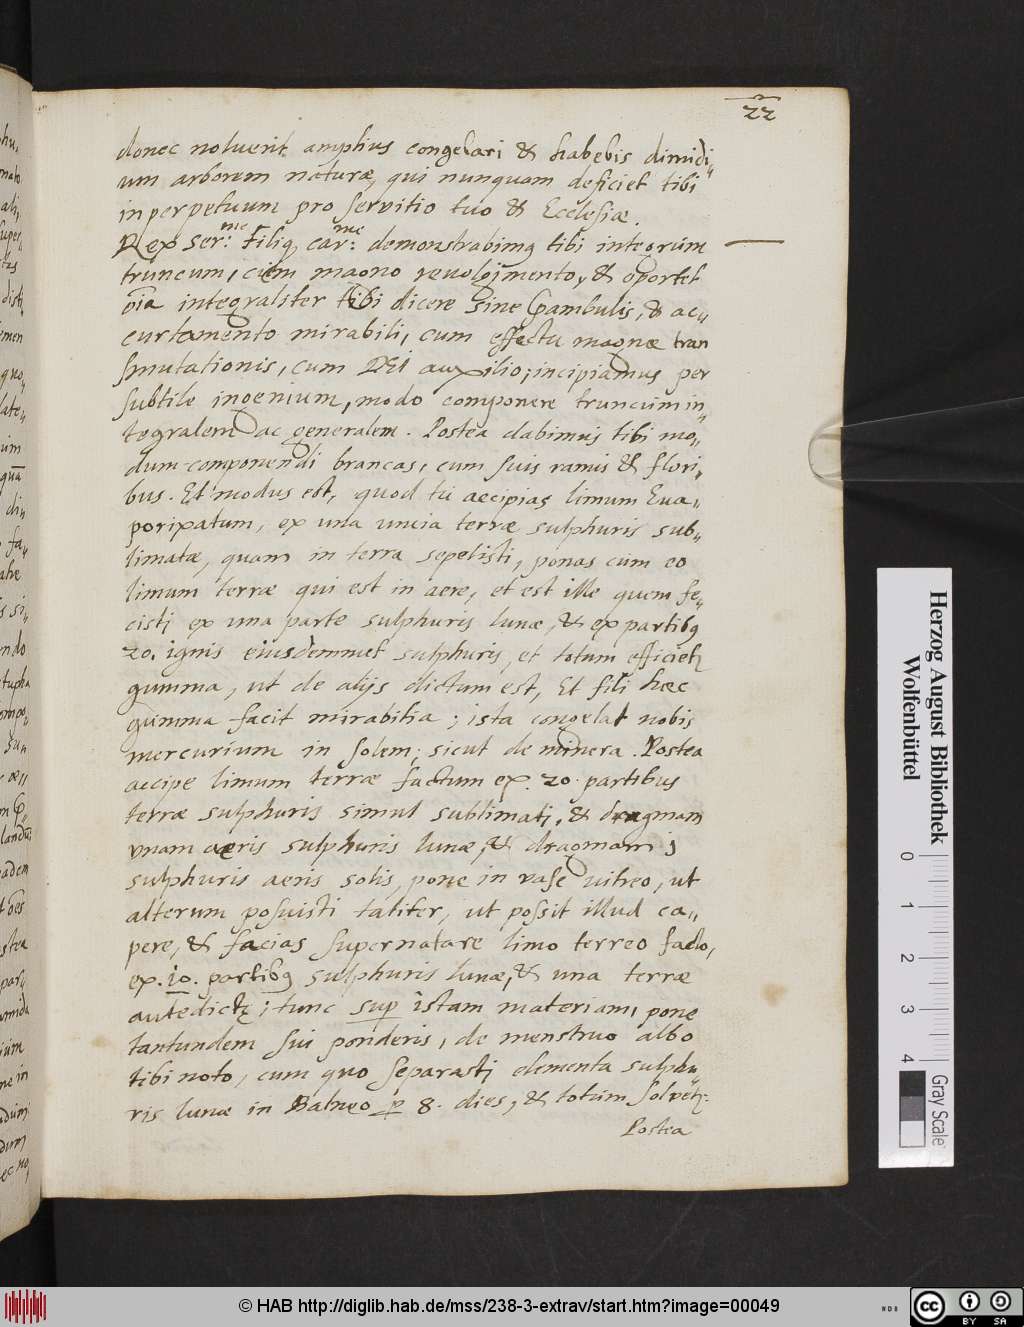 22
donec noluerit amplius congelari & habebis dimidi„
um arborem naturæ, qui nunquam deficiet tibi
in perpetuum pro servitio tuo & Ecclesiæ.
Rex ser:me Filiq, car:me demonstrabimq tibi integrum
truncum, cum magno revolgimento, & oportet
oĩa integraliter tibi dicere sine pambulis, & ac„
curtamento mirabili, cum effectu magnæ tran
smutationis, cum DEI auxilio, incipiamus per
subtile ingenium, modo componere truncum in„
tegralem ac generalem. Postea dabimus tibi mo„
dum componendi brancas, cum suis ramis & flori„
bus. Et modus est, quod tu accipias limum Eva„
poripatum, ex una uncia terræ sulphuris sub„
limatæ, quam in terra sepelisti, ponas cum eo
limum terræ qui est in aere, et est ille quem fe„
cistj ex una parte sulphuris lunæ, & ex partibq
20. ignis eiusdemmet sulphuris, et totum efficietꝛ
gumma, ut de alijs dictum est, Et fili hæc
gumma facit mirabilia; ista congelat nobis
mercurium in solem, sicut de minera. Postea
accipe limum terræ factum ex. 20. partibus
terræ sulphuris simul sublimatj, & dragmam
vnam aeris sulphuris lunæ, & dragmam j
sulphuris aeris solis, pone in vase vitreo, ut
alterum posuisti taliter, ut possit illud ca„
pere, & facias supernatare limo terreo facto,
ex. 10. partibq sulphuris lunæ, & una terræ
antedictę; tunc sup istam materiam, pone
tantundem sui ponderis, de menstruo albo
tibi noto, cum quo separastj elementa sulphu„
ris lunæ in Balneo p 8. dies, & totum solvetꝛ:
Postea
Herzog August Bibliothek
Wolfenbüttel
0 1 2 3 4
Gray Scale
© HAB http://diglib.hab.de/mss/238-3-extrav/start.htm?image=00049
cc BY SA